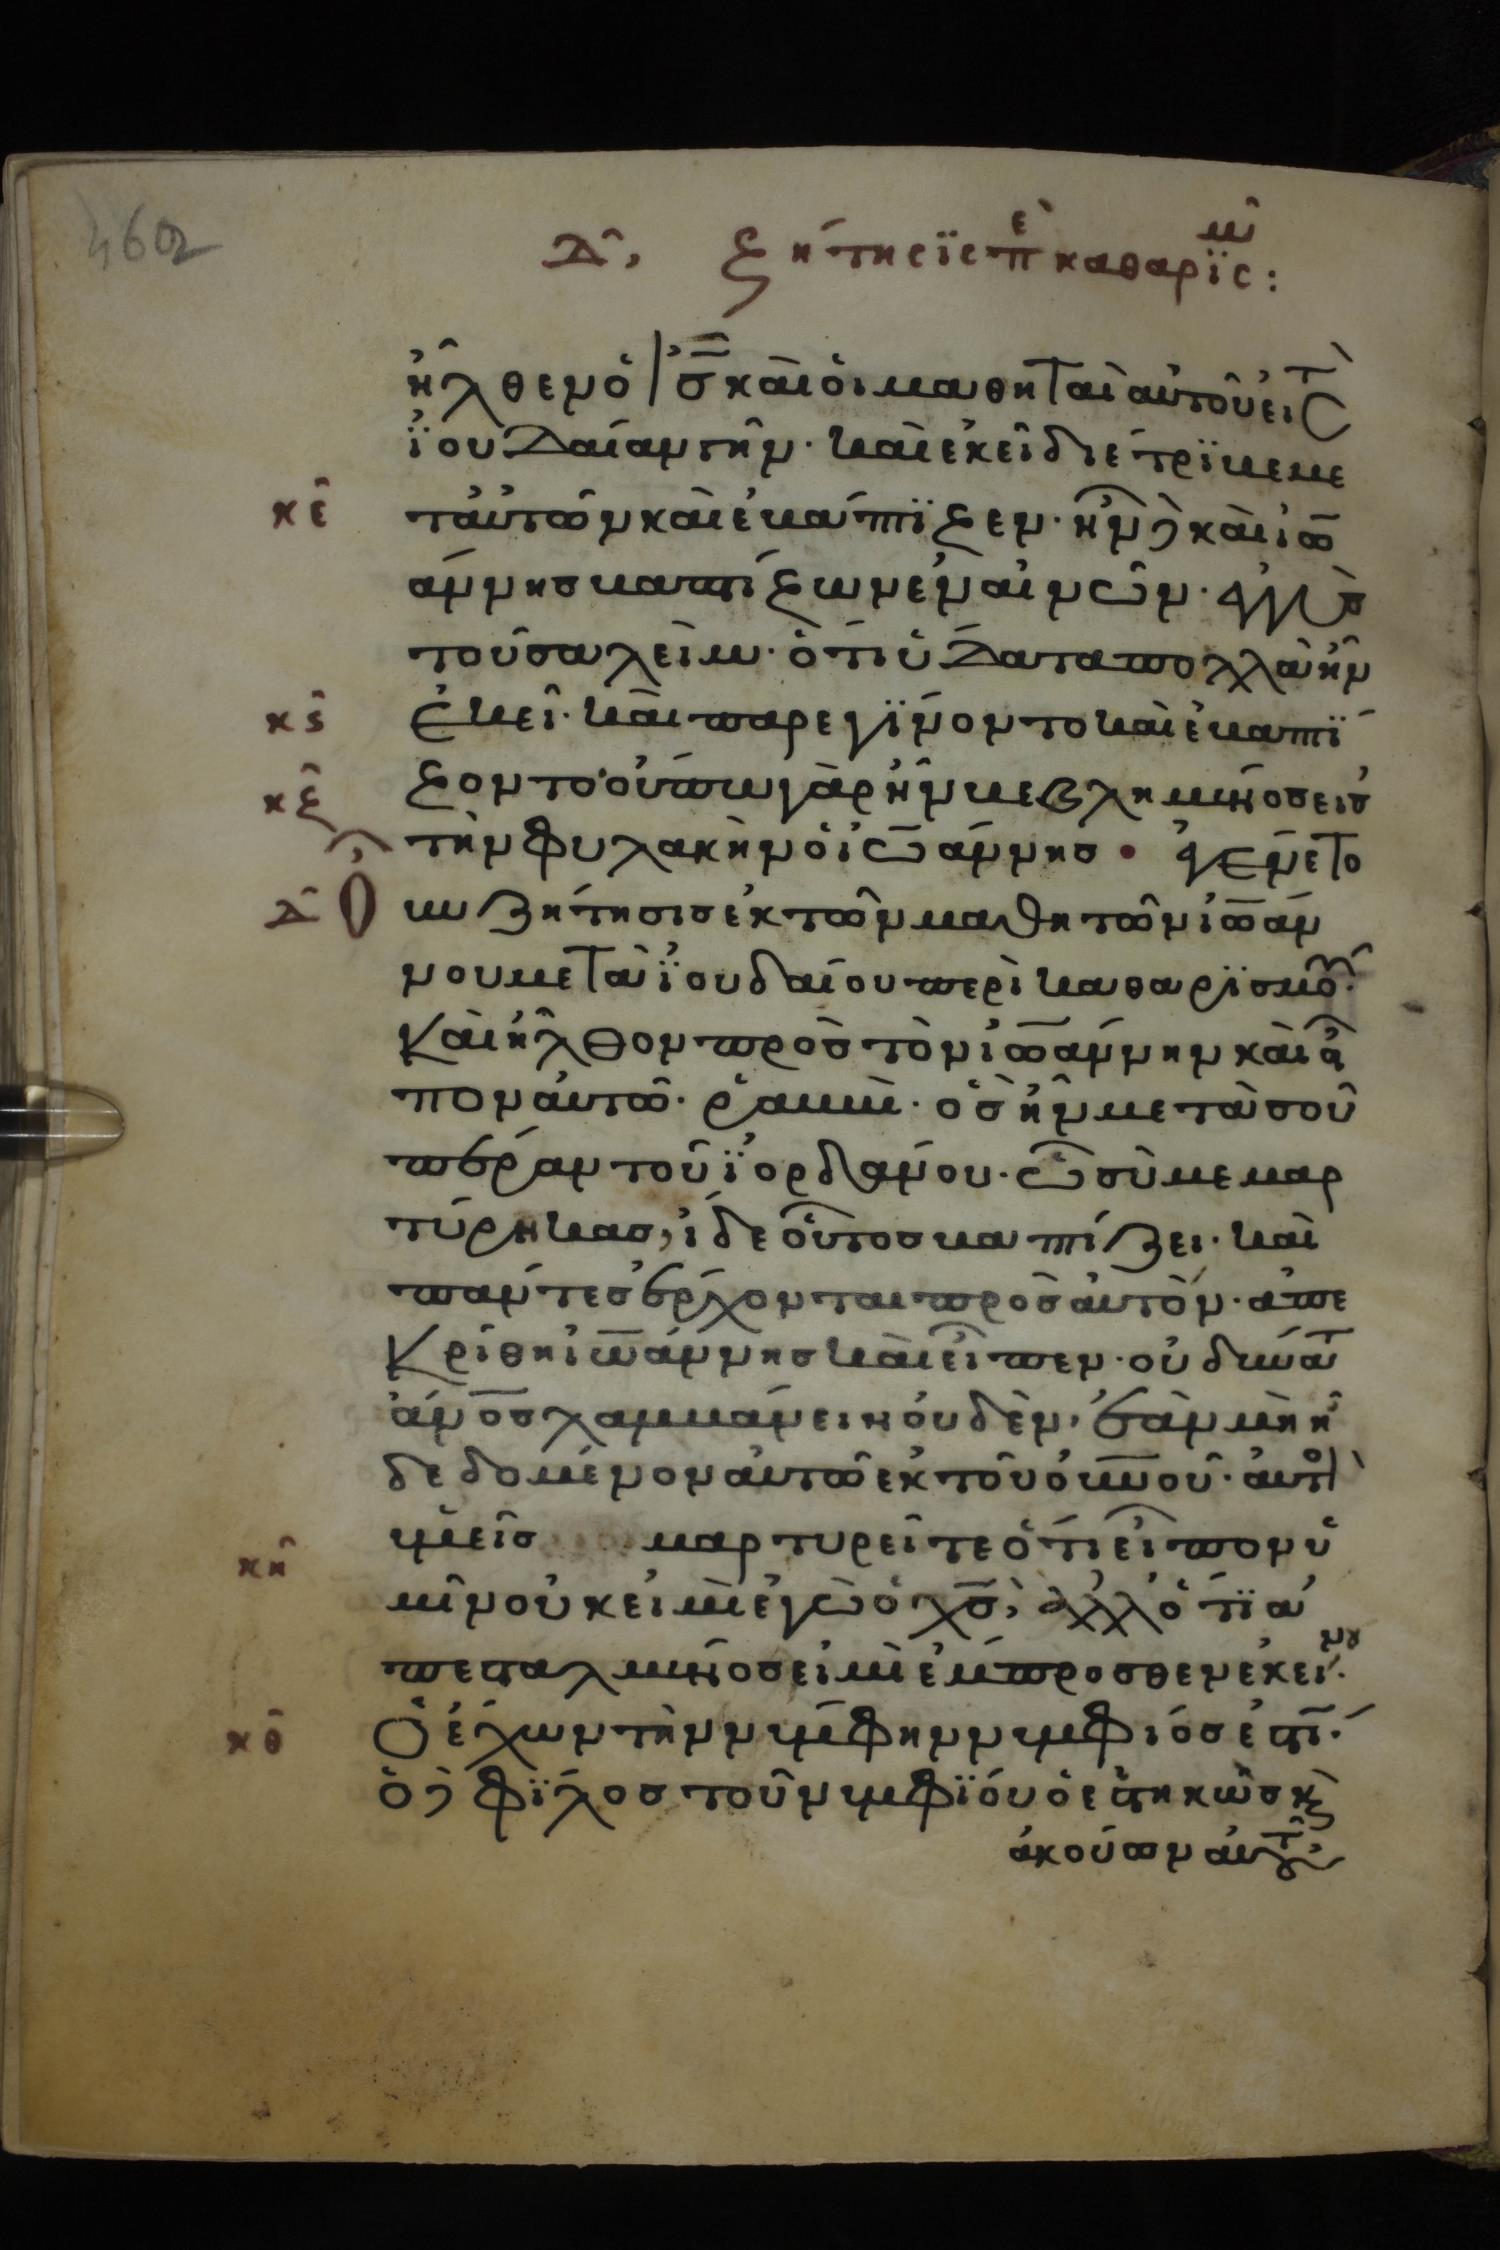 460
Δ, ζήτησϊς ἐπ καθαρϊσμ:
ἦλθεν ὁ ἰς̅ καὶ οἱ μαθηταὶ αὐτοῦ εἰς τ
ϊουδαίαν γῆν· καὶ ἐκεῖ διέτριβε με
κε τ' αὐτῶν καὶ ἐβάπτϊζεν· ἦν δὲ καὶ ἰω
άννης βαπτίζων ἐν αἰνῶν· ἐγγὺς
τοῦ σαλείμ· ὅτι ὕδατα πολλὰ ἦν
κς ἐκεῖ· καὶ παρεγίνοντο καὶ ἐβαπτϊ
κζ ζοντο· οὔπω γὰρ ἦν βεβλημένος εἰς
τὴν φυλακὴν ὁ ἰωάννης · ἐγένετο
Δ Ο οὖν ζήτησις ἐκ τῶν μαθητῶν ἰωάν
νου μετὰ ϊουδαίου περὶ καθαρϊσμοῦ·
καὶ ἦλθον πρὸς τὸν ἰωάννην καὶ εἶ
πον αὐτῶ· ῥαββὶ· ὃς ἦν μετὰ σοῦ
πέραν τοῦ ϊορδάνου· ὧ σὺ μεμαρ
τύρηκας, ἴδε οὗτος βαπτίζει· καὶ
πάντες ἔρχονται πρὸς αὐτόν· ἀπε
κρίθη ἰωάννης καὶ εἶπεν· οὐ δύνατ
ἄνο̅ς λαμβάνειν οὐδὲν, ἐὰν μὴ ἦ
δεδομένον αὐτῶ ἐκ τοῦ οὐνοῦ· αὐτοὶ
κη ὑμεῖς μαρτυρεῖτε ὅτι εἶπον ὑ
μῖν οὐκ εἰμὶ ἐγὼ ὁ χς̅, ἀλλ' ὅτϊ ἀ
πεσταλμένος εἰμὶ ἔμπροσθεν ἐκείνου·
κθ ὁ ἔχων τὴν νύμφην νυμφίος ἐστί·
ὁ δὲ φϊλος τοῦ νυμφϊου ὁ ἑστηκὼς κ
ἀκούων αὐτοῦ